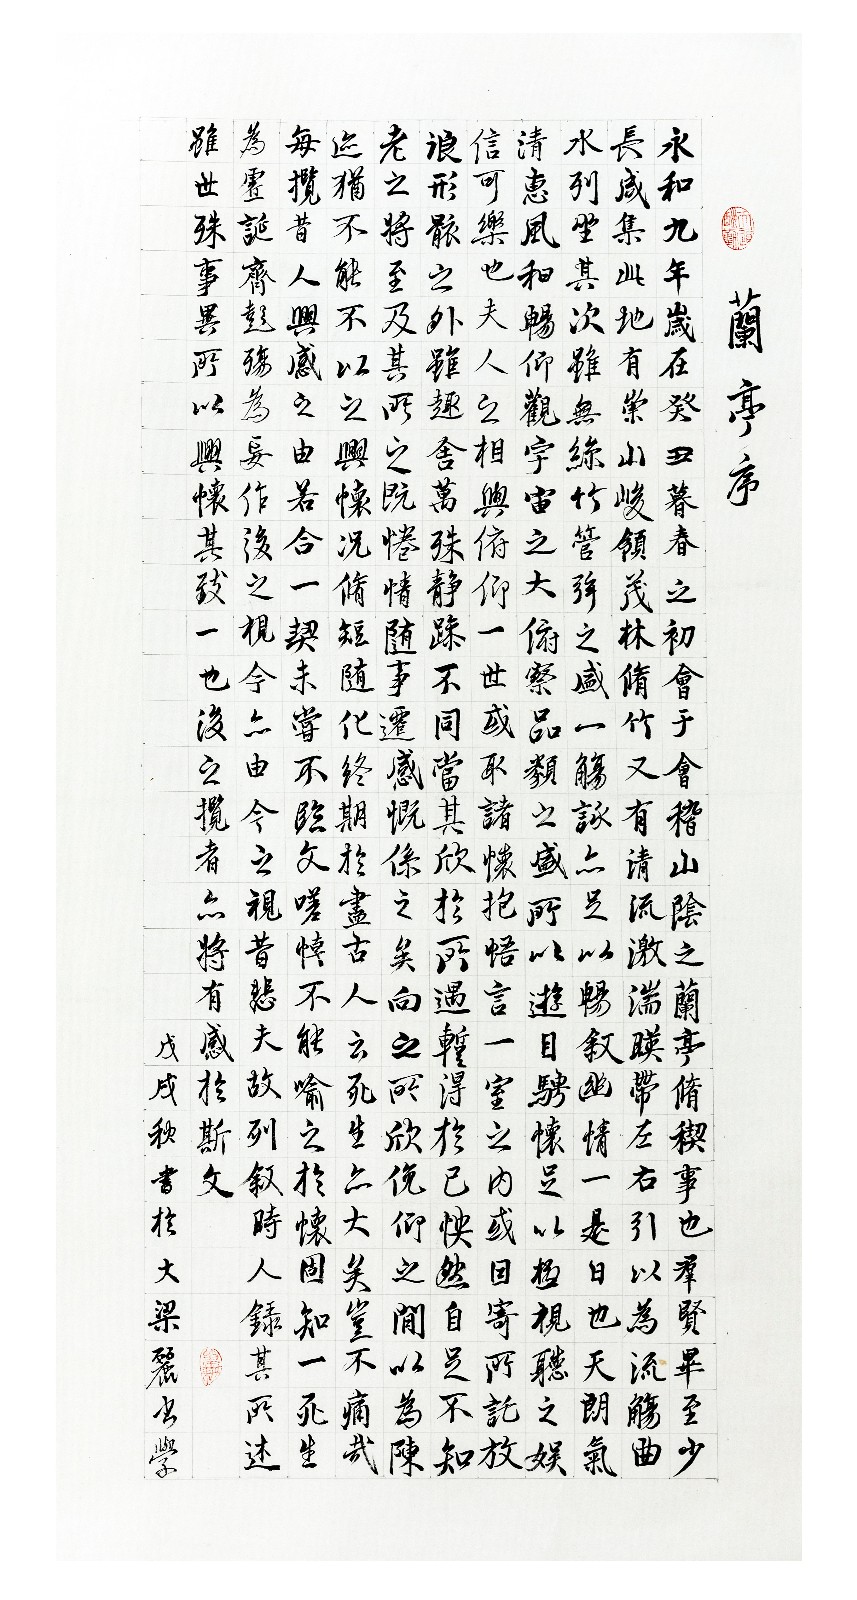 蘭亭序
永和九年歲在癸丑暮春之初會于會稽山陰之蘭亭脩稧事也羣賢畢至少
長咸集此地有崇山峻領茂林脩竹又有清流激湍暎帶左右引以為流觴曲
水列坐其次雖無絲竹管弦之盛一觴詠亦足以暢叙幽情一是日也天朗氣
清惠風和暢仰觀宇宙之大俯察品類之盛所以遊目騁懷足以極視聽之娱
信可樂也夫人之相與俯仰一世或取諸懷抱悟言一室之内或因寄所託放
浪形骸之外雖趣舍萬殊静躁不同當其欣於所遇蹔得於己怏然自足不知
老之將至及其所之既惓情随事遷感慨係之矣向之所欣俛仰之間以為陳
迹猶不能不以之興懷況脩短随化終期於盡古人云死生亦大矣豈不痛哉
每攬昔人興感之由若合一契未嘗不臨文嗟悼不能喻之於懷固知一死生
為虛誕齊彭殤為妄作後之視今亦由今之視昔悲夫故列叙時人錄其所述
雖世殊事異所以興懷其致一也後之攬者亦將有感於斯文
戊戌秋書於大梁麗學